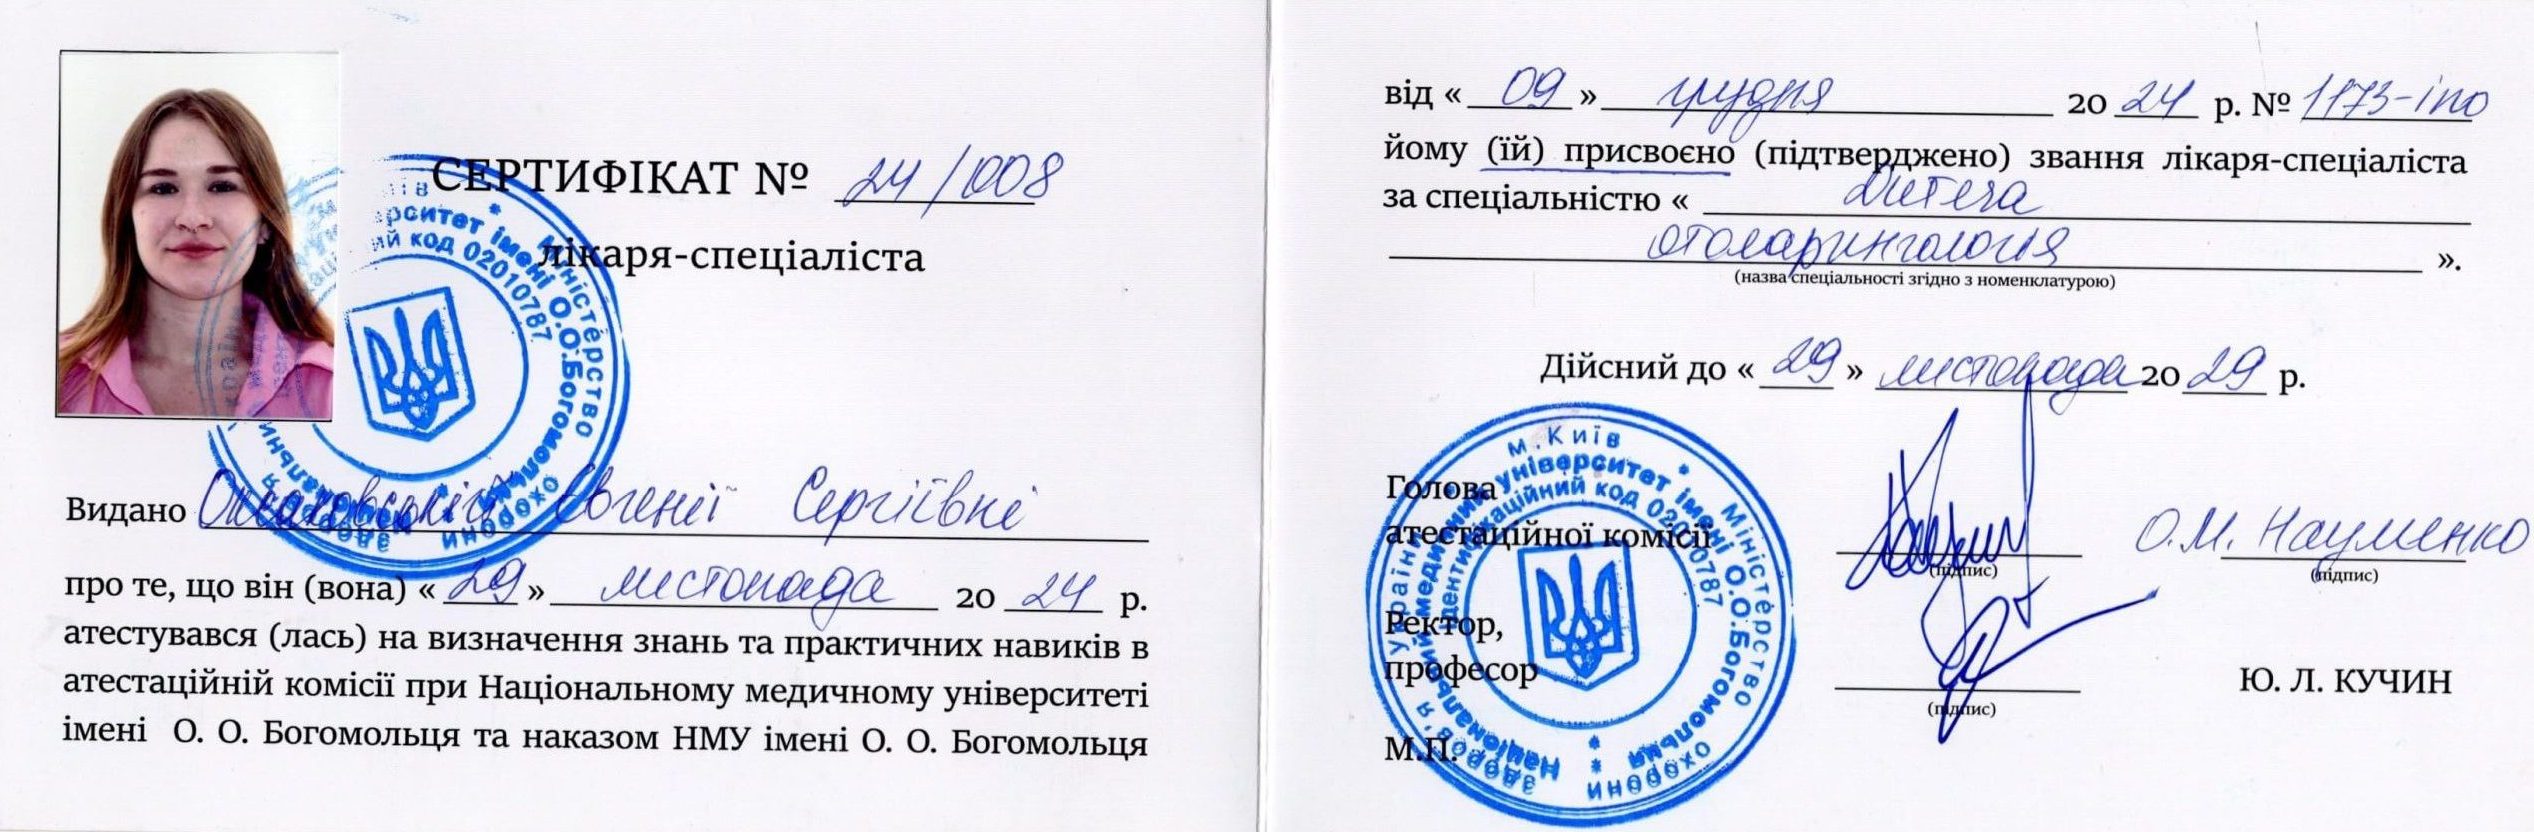 СЕРТИФІКАТ № 24/1008
лікаря-спеціаліста
Видано Євгенії Сергіївні
про те, що він (вона) « 29 » листопада 20 24 р.
атестувався (лась) на визначення знань та практичних навиків в
атестаційній комісії при Національному медичному університеті
імені О. О. Богомольця та наказом НМУ імені О. О. Богомольця
від « 09 » грудня 20 24 р. № 1173-іпо
йому (їй) присвоєно (підтверджено) звання лікаря-спеціаліста
за спеціальністю « Дитяча
отоларингологія ».
(назва спеціальності згідно з номенклатурою)
Дійсний до « 29 » листопада 20 29 р.
Голова
атестаційної комісії О.М. Науменко
(підпис) (підпис)
Ректор,
професор Ю. Л. КУЧИН
(підпис)
М.П.
м. Київ * Міністерство охорони здоров'я України
Національний медичний університет імені О.О.Богомольця
Ідентифікаційний код 02010787